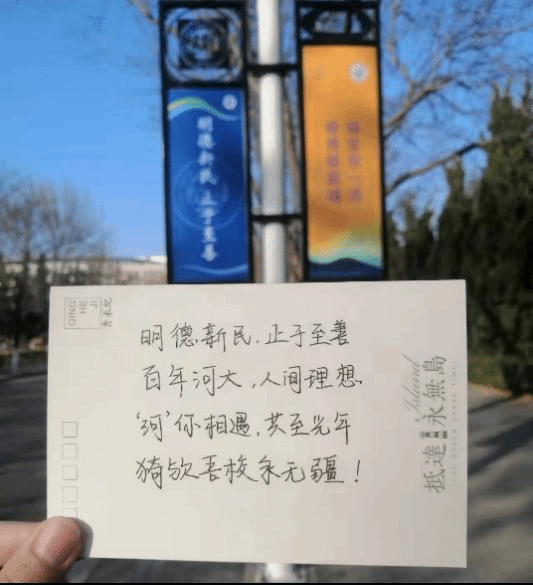 明德新民 止于至善
QING
HE
JI
青禾纪
明德新民.止于至善
百年河大,人间理想.
'河'你相遇,共至光年
猗欤吾校永无疆!
Island
抵達 永無島